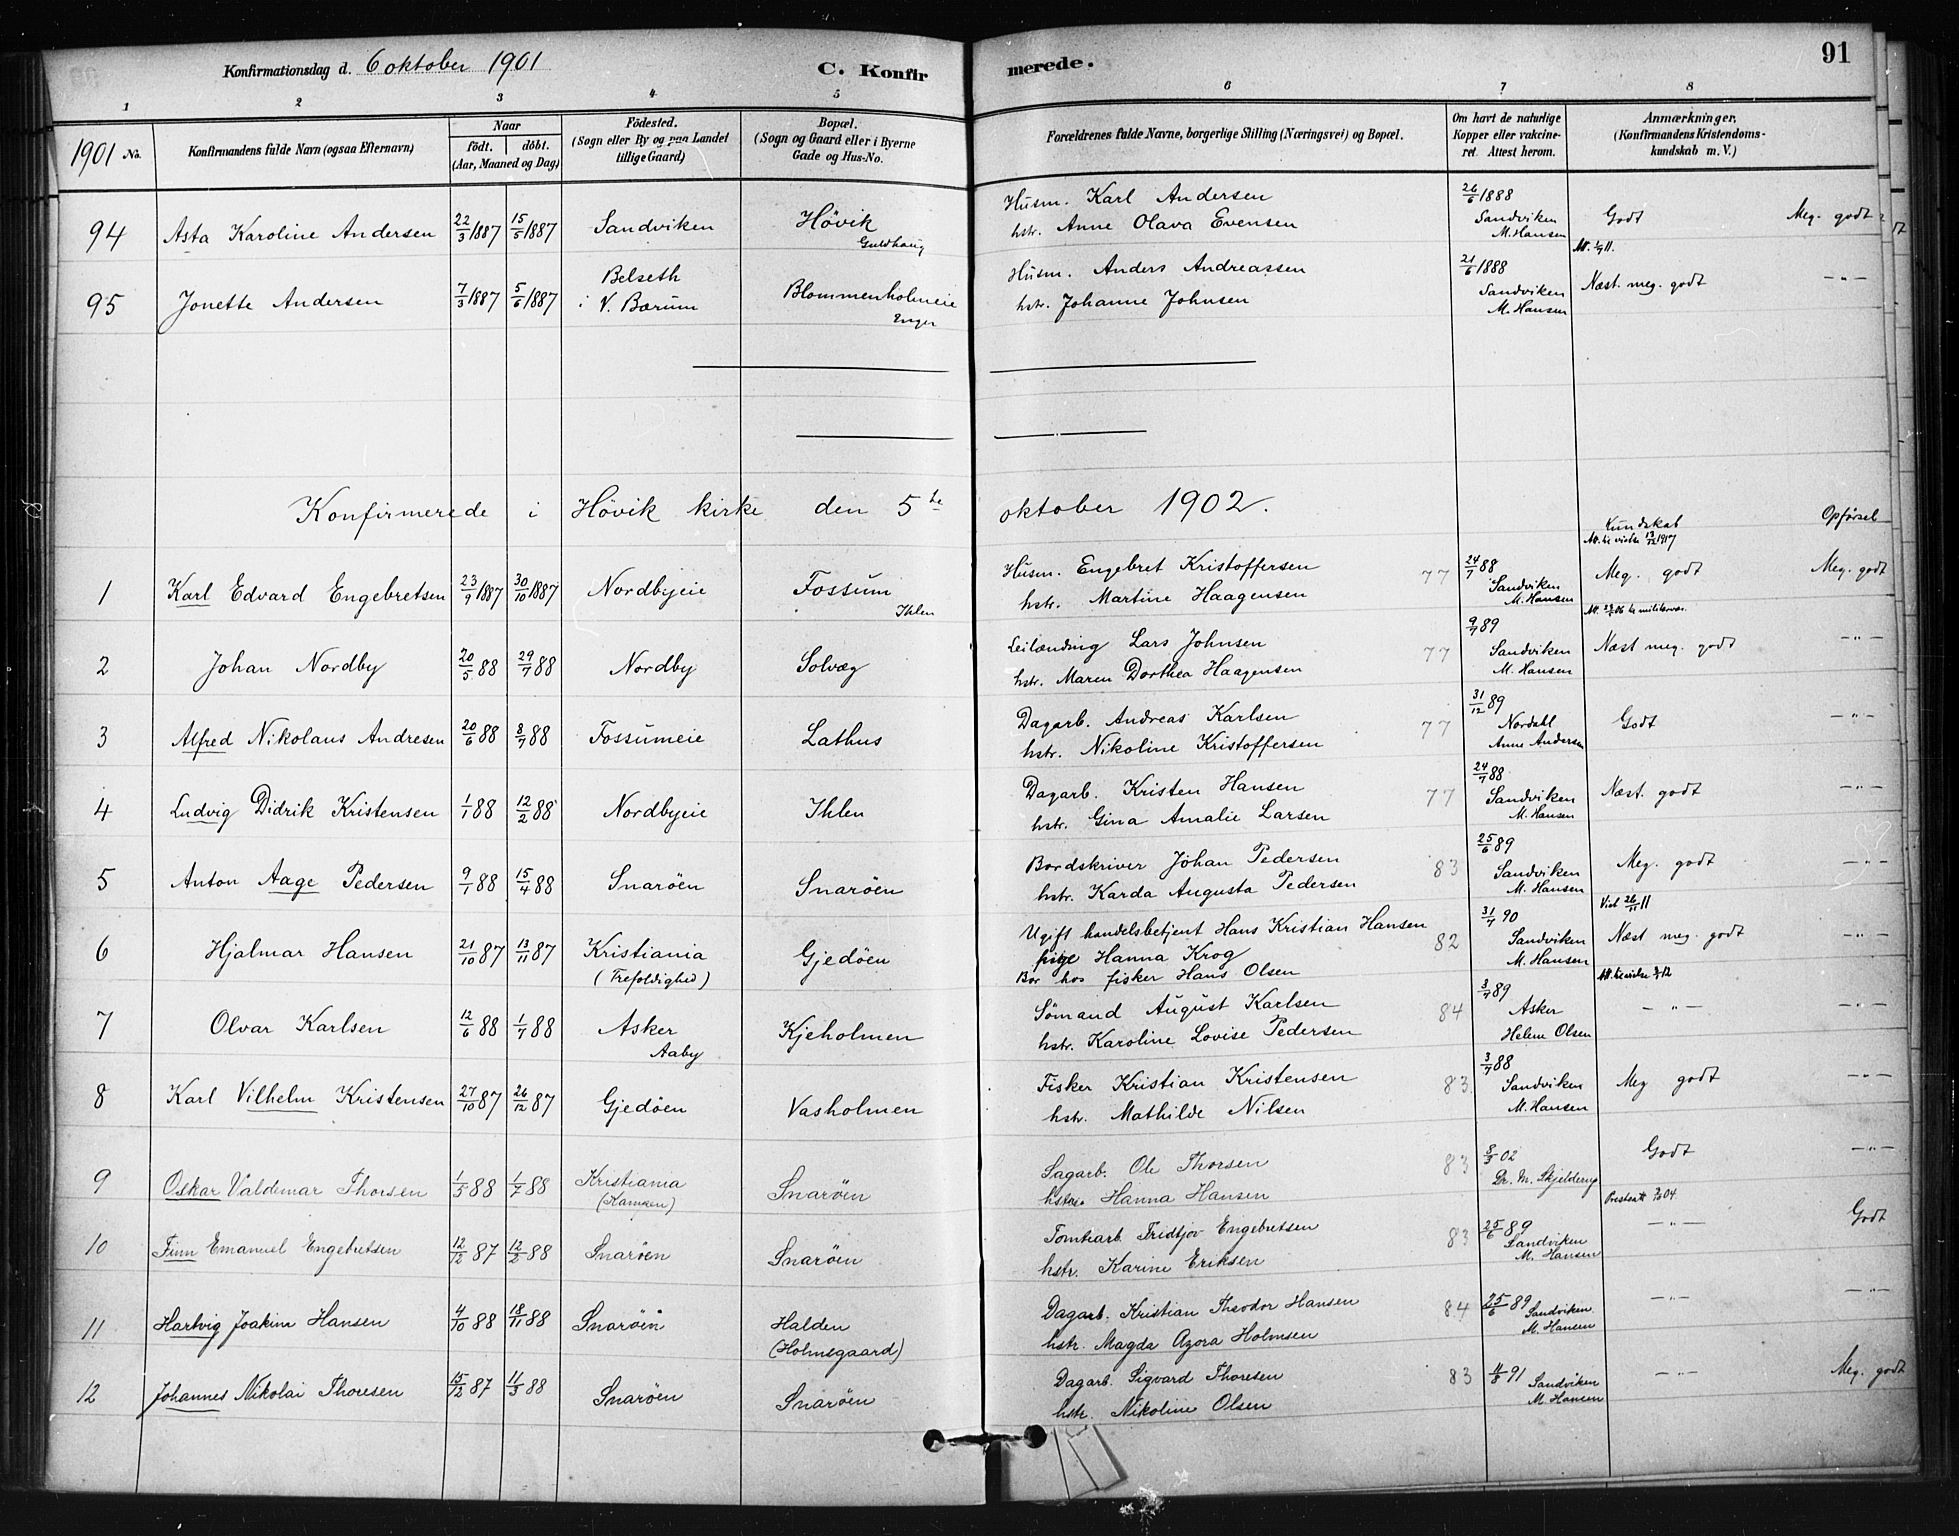 Konfirmationsdag d. 6 oktober 1901
C. Konfirmerede.
91
1 2 3 4 5 6 7 8
1901 No.
Konfirmandens fulde Navn (ogsaa Efternavn)
Naar
födt. döbt.
(Aar, Maaned og Dag)
Födested.
(Sogn eller By og paa Landet
tillige Gaard)
Bopæl.
(Sogn og Gaard eller i Byerne
Gade og Hus-No.
Forældrenes fulde Navne, borgerlige Stilling (Næringsvei) og Bopæl.
Om havt de naturlige
Kopper eller vakcine-
ret. Attest herom.
Anmærkninger,
(Konfirmandens Kristendoms-
kundskab m. V.)
94 Asta Karoline Andersen 22/3 1887 15/5 1887 Sandviken Hövik Guldhaug
Husm. Karl Andersen
hstr. Anne Olava Evensen
26/6 1888 Sandviken M. Hansen Godt Meg. godt
95 Jonette Andersen 7/3 1887 5/6 1887 Belseth i V. Bærum Blommenholmeie Enger
Husm. Anders Andreassen
hstr. Johanne Johnsen
21/6 1888 Sandviken M. Hansen Næst. meg. godt -"-
Konfirmerede i Hövik kirke den 5te oktober 1902.
Kundskab Opførsel
1 Karl Edvard Engebretsen 23/9 1887 30/10 1887 Nordbyeie Fossum Ihlen
Husm. Engebret Kristoffersen
hstr. Martine Haagensen
77 24/7 88 Sandviken M. Hansen Meg. godt Meg. godt
2 Johan Nordby 20/5 88 29/7 88 Nordby Solvæg
Leilænding Lars Johnsen
hstr. Maren Dorthea Haagensen
77 9/7 89 Sandviken M. Hansen Næst meg. godt -"-
3 Alfred Nikolaus Andresen 20/6 88 8/7 88 Fossumeie Lathus
Dagarb. Andreas Karlsen
hstr. Nikoline Kristoffersen
77 31/12 89 Nordahl Anne Andersen Godt -"-
4 Ludvig Didrik Kristensen 1/1 88 12/2 88 Nordbyeie Ihlen
Dagarb. Kristen Hansen
hstr. Gina Amalie Larsen
77 24/7 88 Sandviken M. Hansen Næst. godt -"-
5 Anton Aage Pedersen 9/1 88 15/4 88 Snaröen Snaröen
Bordskriver Johan Pedersen
hstr. Karda Augusta Pedersen
83 25/6 89 Sandviken M. Hansen Meg. godt -"-
6 Hjalmar Hansen 21/10 87 13/11 87 Kristiania (Trefoldighed) Gjedöen
Ugift handelsbetjent Hans Kristian Hansen
pige Hanna Krog
Bor hos fisker Hans Olsen
82 31/7 90 Sandviken M. Hansen Næst meg. godt -"-
7 Olvar Karlsen 12/6 88 1/7 88 Asker Aaby Kjeholmen
Sömand August Karlsen
hstr. Karoline Lovise Pedersen
84 3/7 89 Asker Helene Olsen -"- -"-
8 Karl Vilhelm Kristensen 27/10 87 26/12 87 Gjedöen Vasholmen
Fisker Kristian Kristensen
hstr. Mathilde Nilsen
83 3/7 88 Sandviken M. Hansen Meg godt -"-
9 Oskar Valdemar Thorsen 1/5 88 1/7 88 Kristiania Snaröen
Sagarb. Ole Thorsen
hstr. Hanna Hansen
83 8/3 02 Dr. M. Skjelderup Godt -"-
10 Finn Emanuel Engebretsen 12/12 87 12/2 88 Snaröen Snaröen
Tomtearb. Fridtjov Engebretsen
hstr. Karine Eriksen
83 25/6 89 Sandviken M. Hansen -"- Godt
11 Hartvig Joakim Hansen 4/10 88 18/11 88 Snaröen Halden (Holmegaard)
Dagarb. Kristian Theodor Hansen
hstr. Magda Azora Holmsen
84 25/6 89 Sandviken M. Hansen -"- -"-
12 Johannes Nikolai Thoresen 15/12 87 11/3 88 Snaröen Snaröen
Dagarb. Sigvard Thoresen
hstr. Nikoline Olsen
83 4/8 91 Sandviken M. Hansen -"- Meg. godt